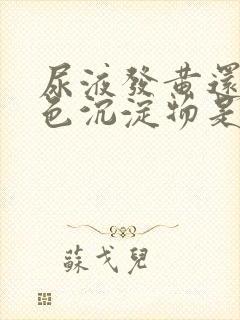 尿液發黃還
色沉淀物是
蘇戈兒